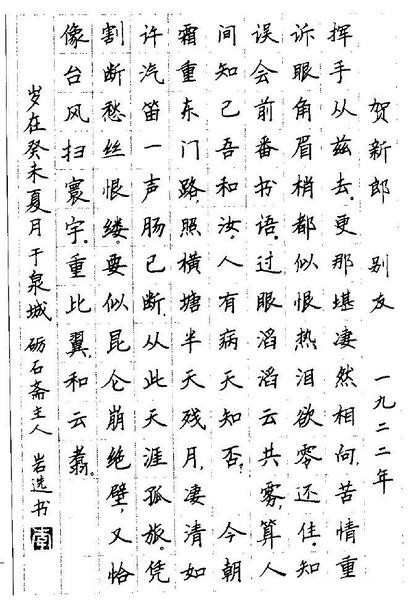 贺新郎 别友 一九二二年
挥手从兹去。更那堪凄然相向,苦情重
诉眼角眉梢都似恨热泪欲零还住。知
误会前番书语。过眼滔滔云共雾,算人
间知己吾和汝。人有病天知否。 今朝
霜重东门路,照横塘半天残月,凄清如
许汽笛一声肠已断,从此天涯孤旅。凭
割断愁丝恨缕。要似昆仑崩绝壁,又恰
像台风扫寰宇。重比翼,和云翥。
岁在癸未夏月于泉城 砺石斋主人 岩选书